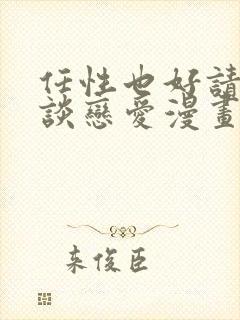 任性也好請
談戀愛漫畫
来俊臣